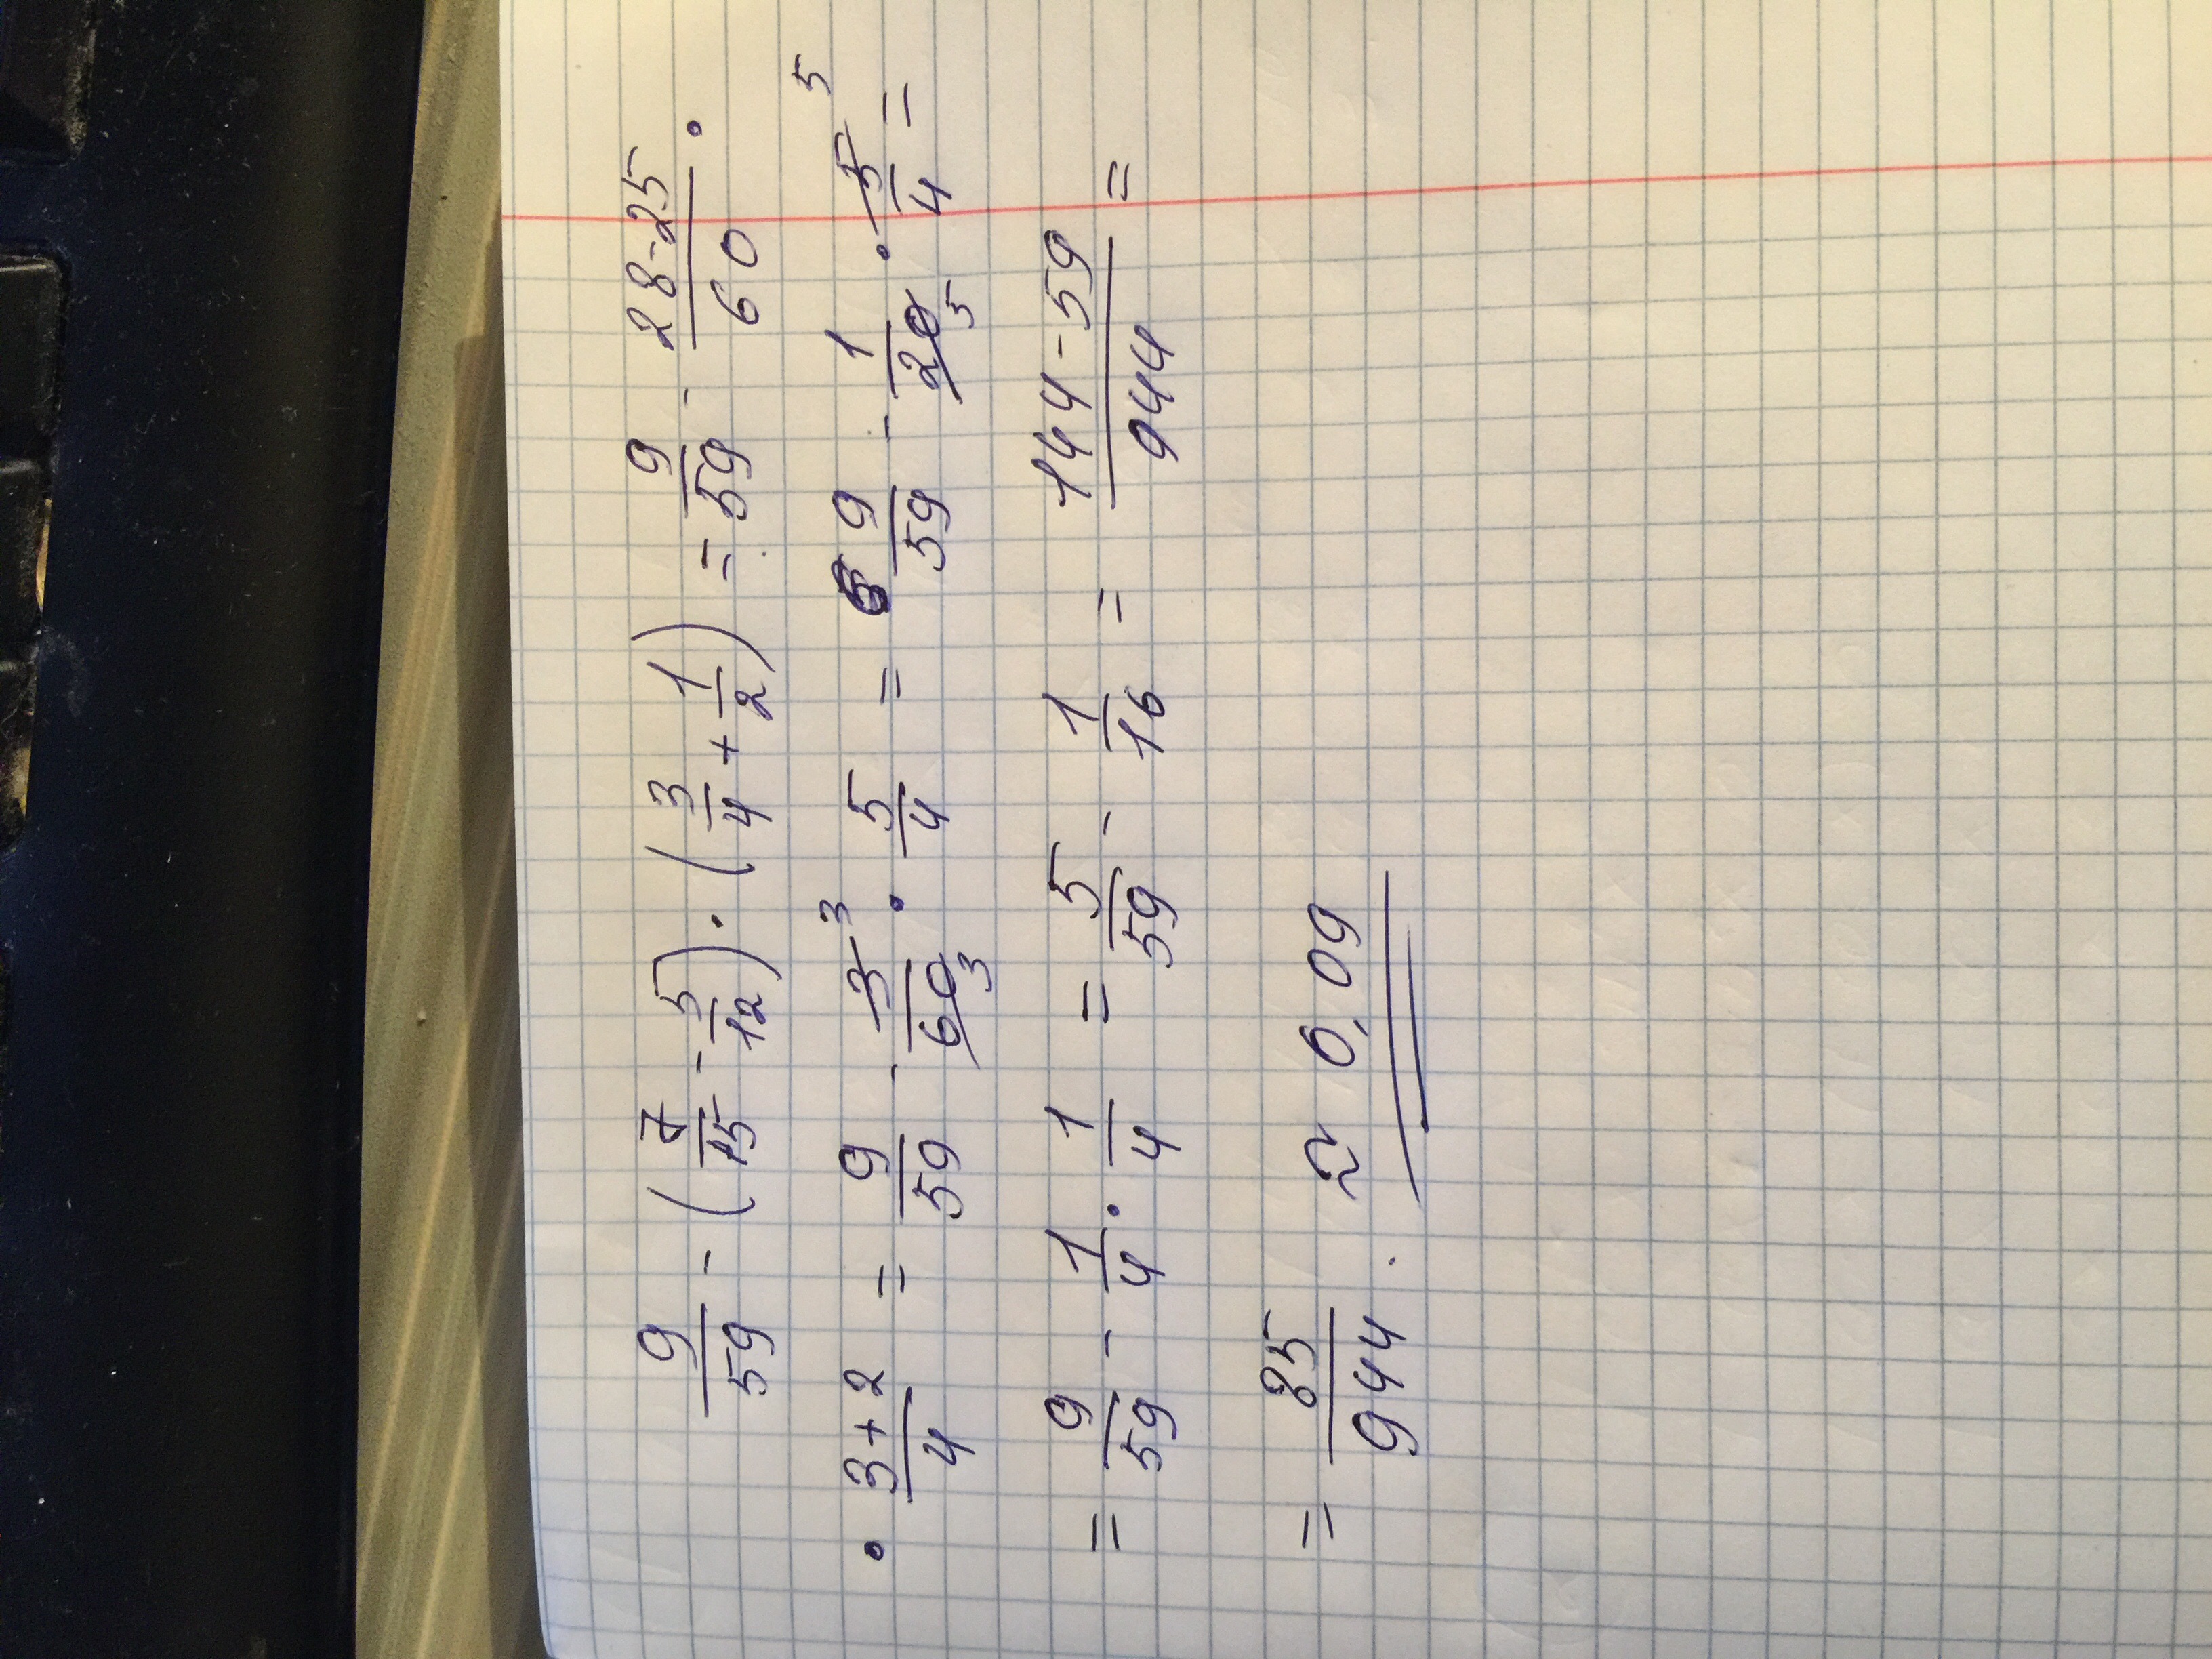 9/59 - (7/15 - 5/12) · (3/4 + 1/2) = 9/59 - (28-25)/60 ·
· (3+2)/4 = 9/59 - 3/60 3 3 · 5/4 = 9/59 - 1/20 5 · 5/4 5 =
= 9/59 - 1/4 · 1/4 = 5/59 - 1/16 = (144-59)/944 =
= 85/944 . ≈ 0,09